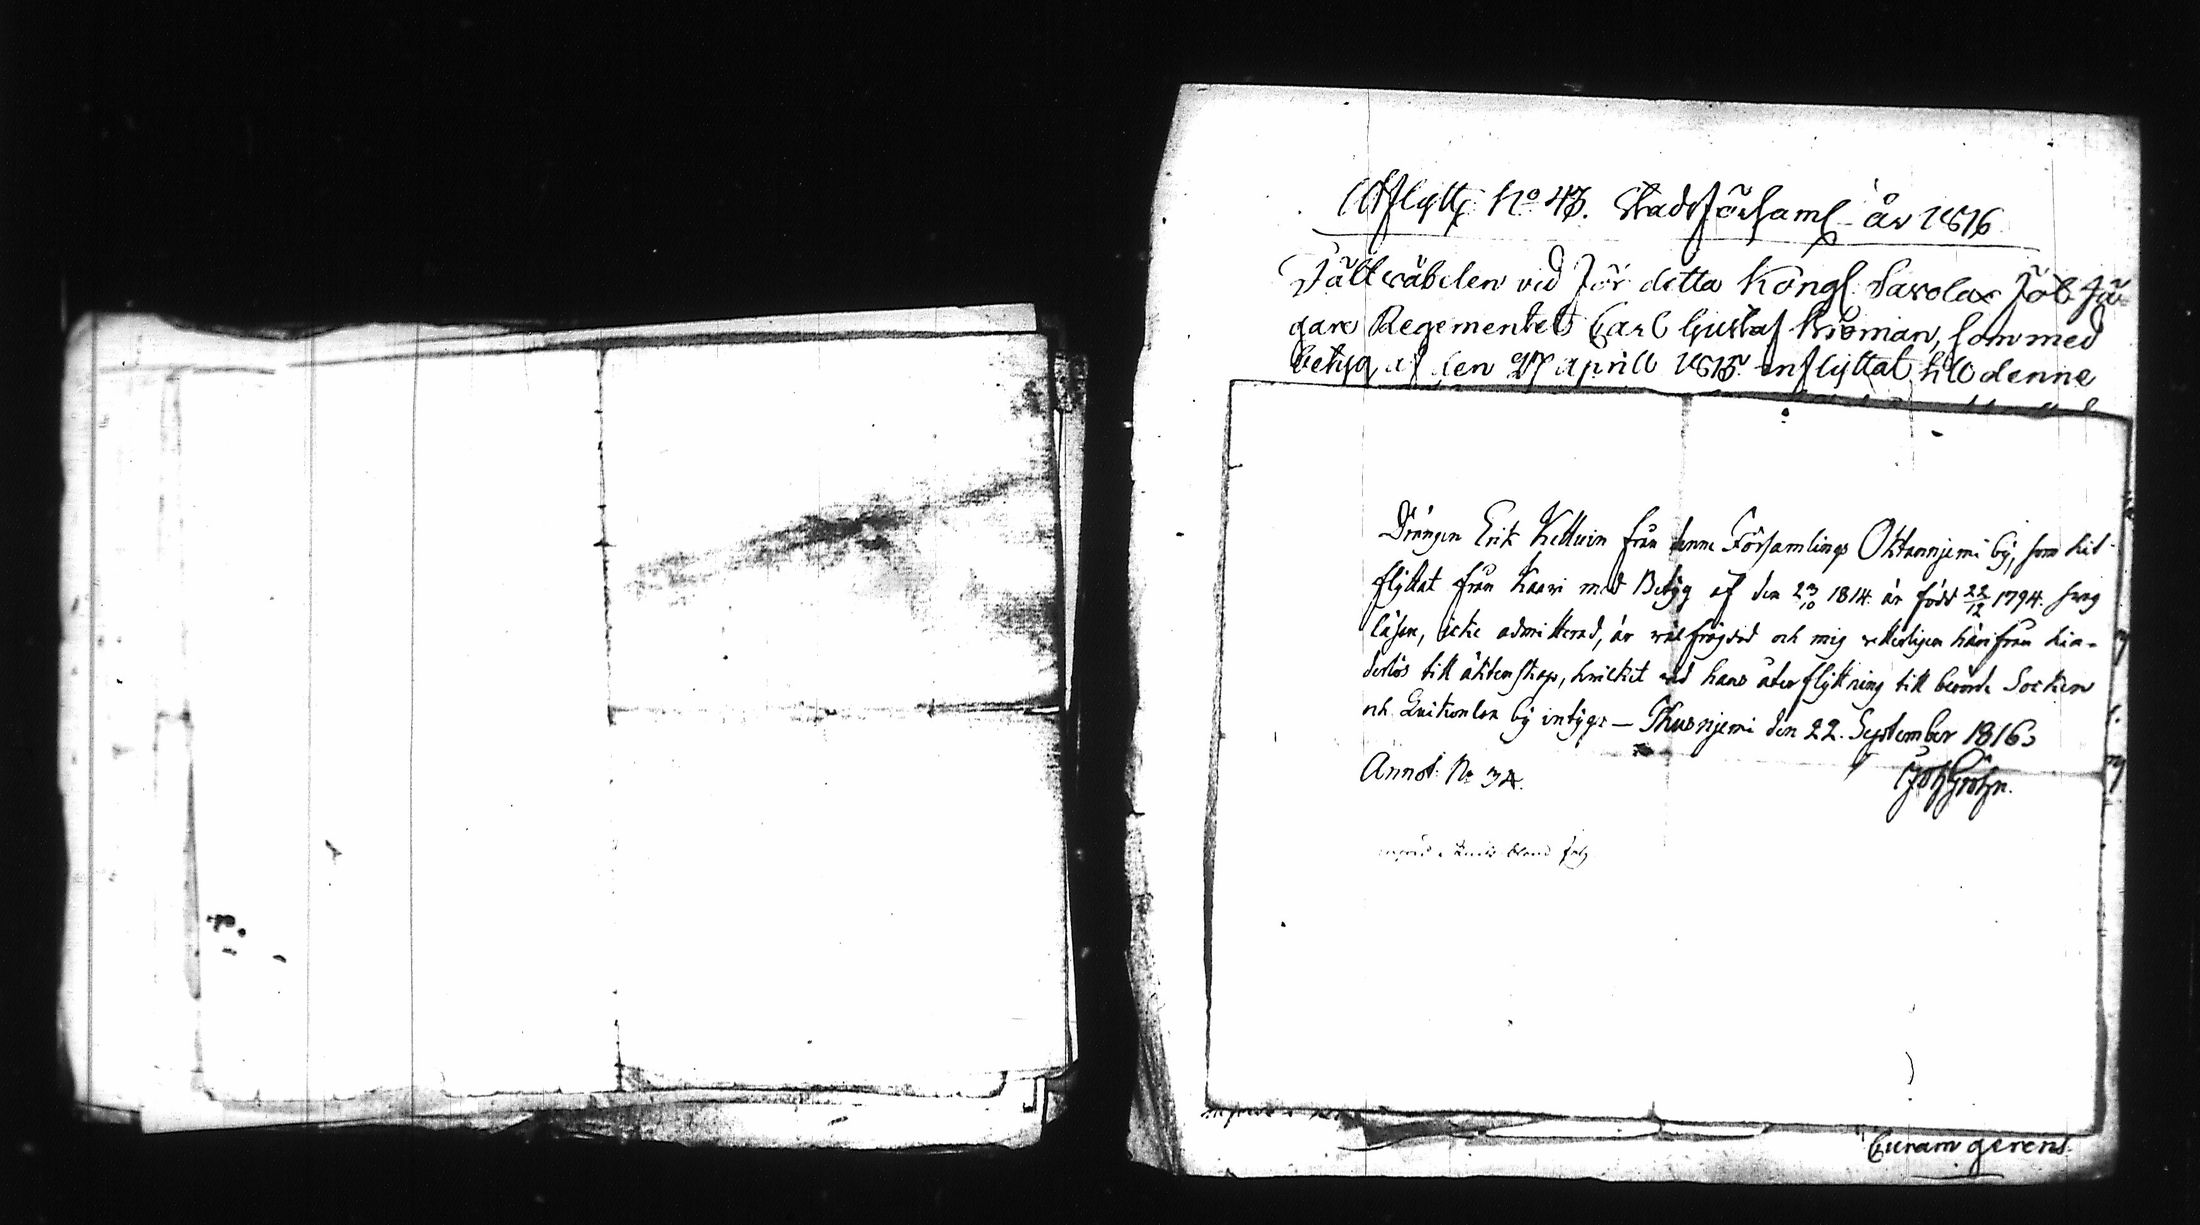 Utflyttg No 43. Stadsförsaml år 1816
Fältwäbelen vid för detta Kongl. Savolax Fält Jä-
gare Regementet Carl Gustaf Broman, som med
betyg af den 27 April 1815 inflyttat till denne
Drängen Erik Kettuin från denne Församlings Oktannjemi by, som hit-
flyttat från Kaavi med Betyg af den 23/10 1814. är född 22/12 1794. swag
läsen, icke admitterad, är wälfrägdad och mig witterligen härifrån hin-
derlös till äktenskap, hwilket wid hans återflyttning till berörde Socken
och by intygr — Thusnjemi den 22. September 1816.
Annot: No 34.
Joh Gröhn.
Curam gerens